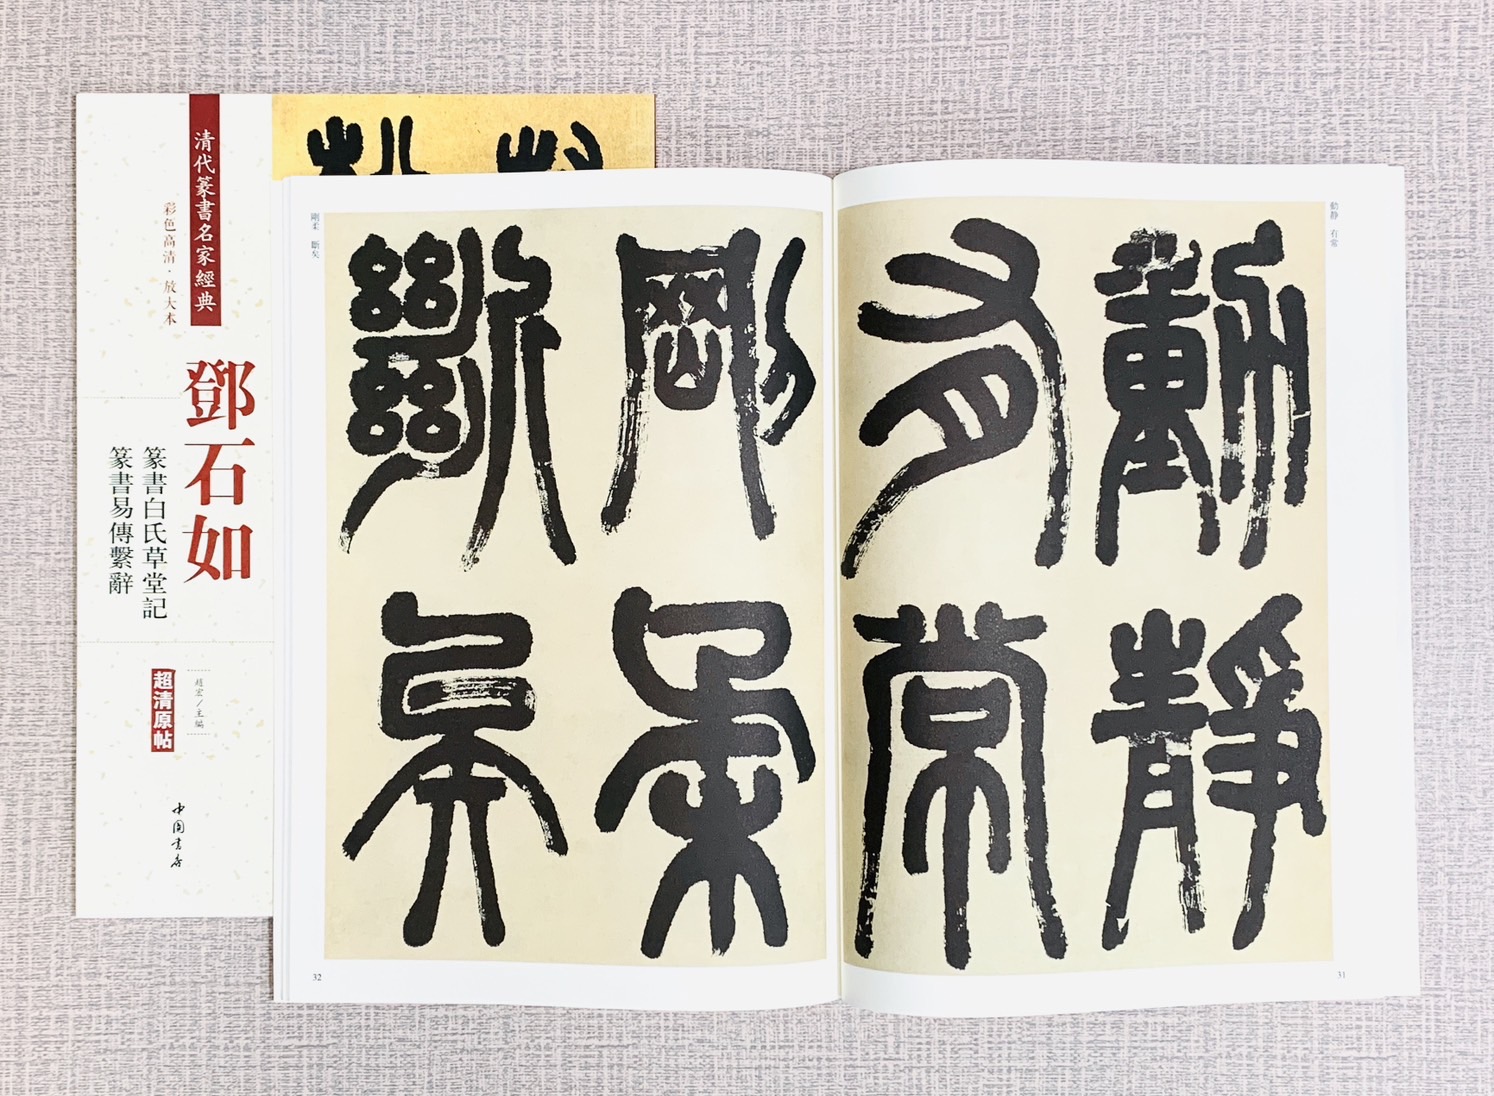 清代篆書名家經典
彩色高清·放大本
鄧石如
篆書白氏草堂記
篆書易傳繫辭
趙宏/主編
超清原帖
中国书店
動靜 有常
動靜
有常
31
剛柔 斷矣
剛柔
斷矣
32